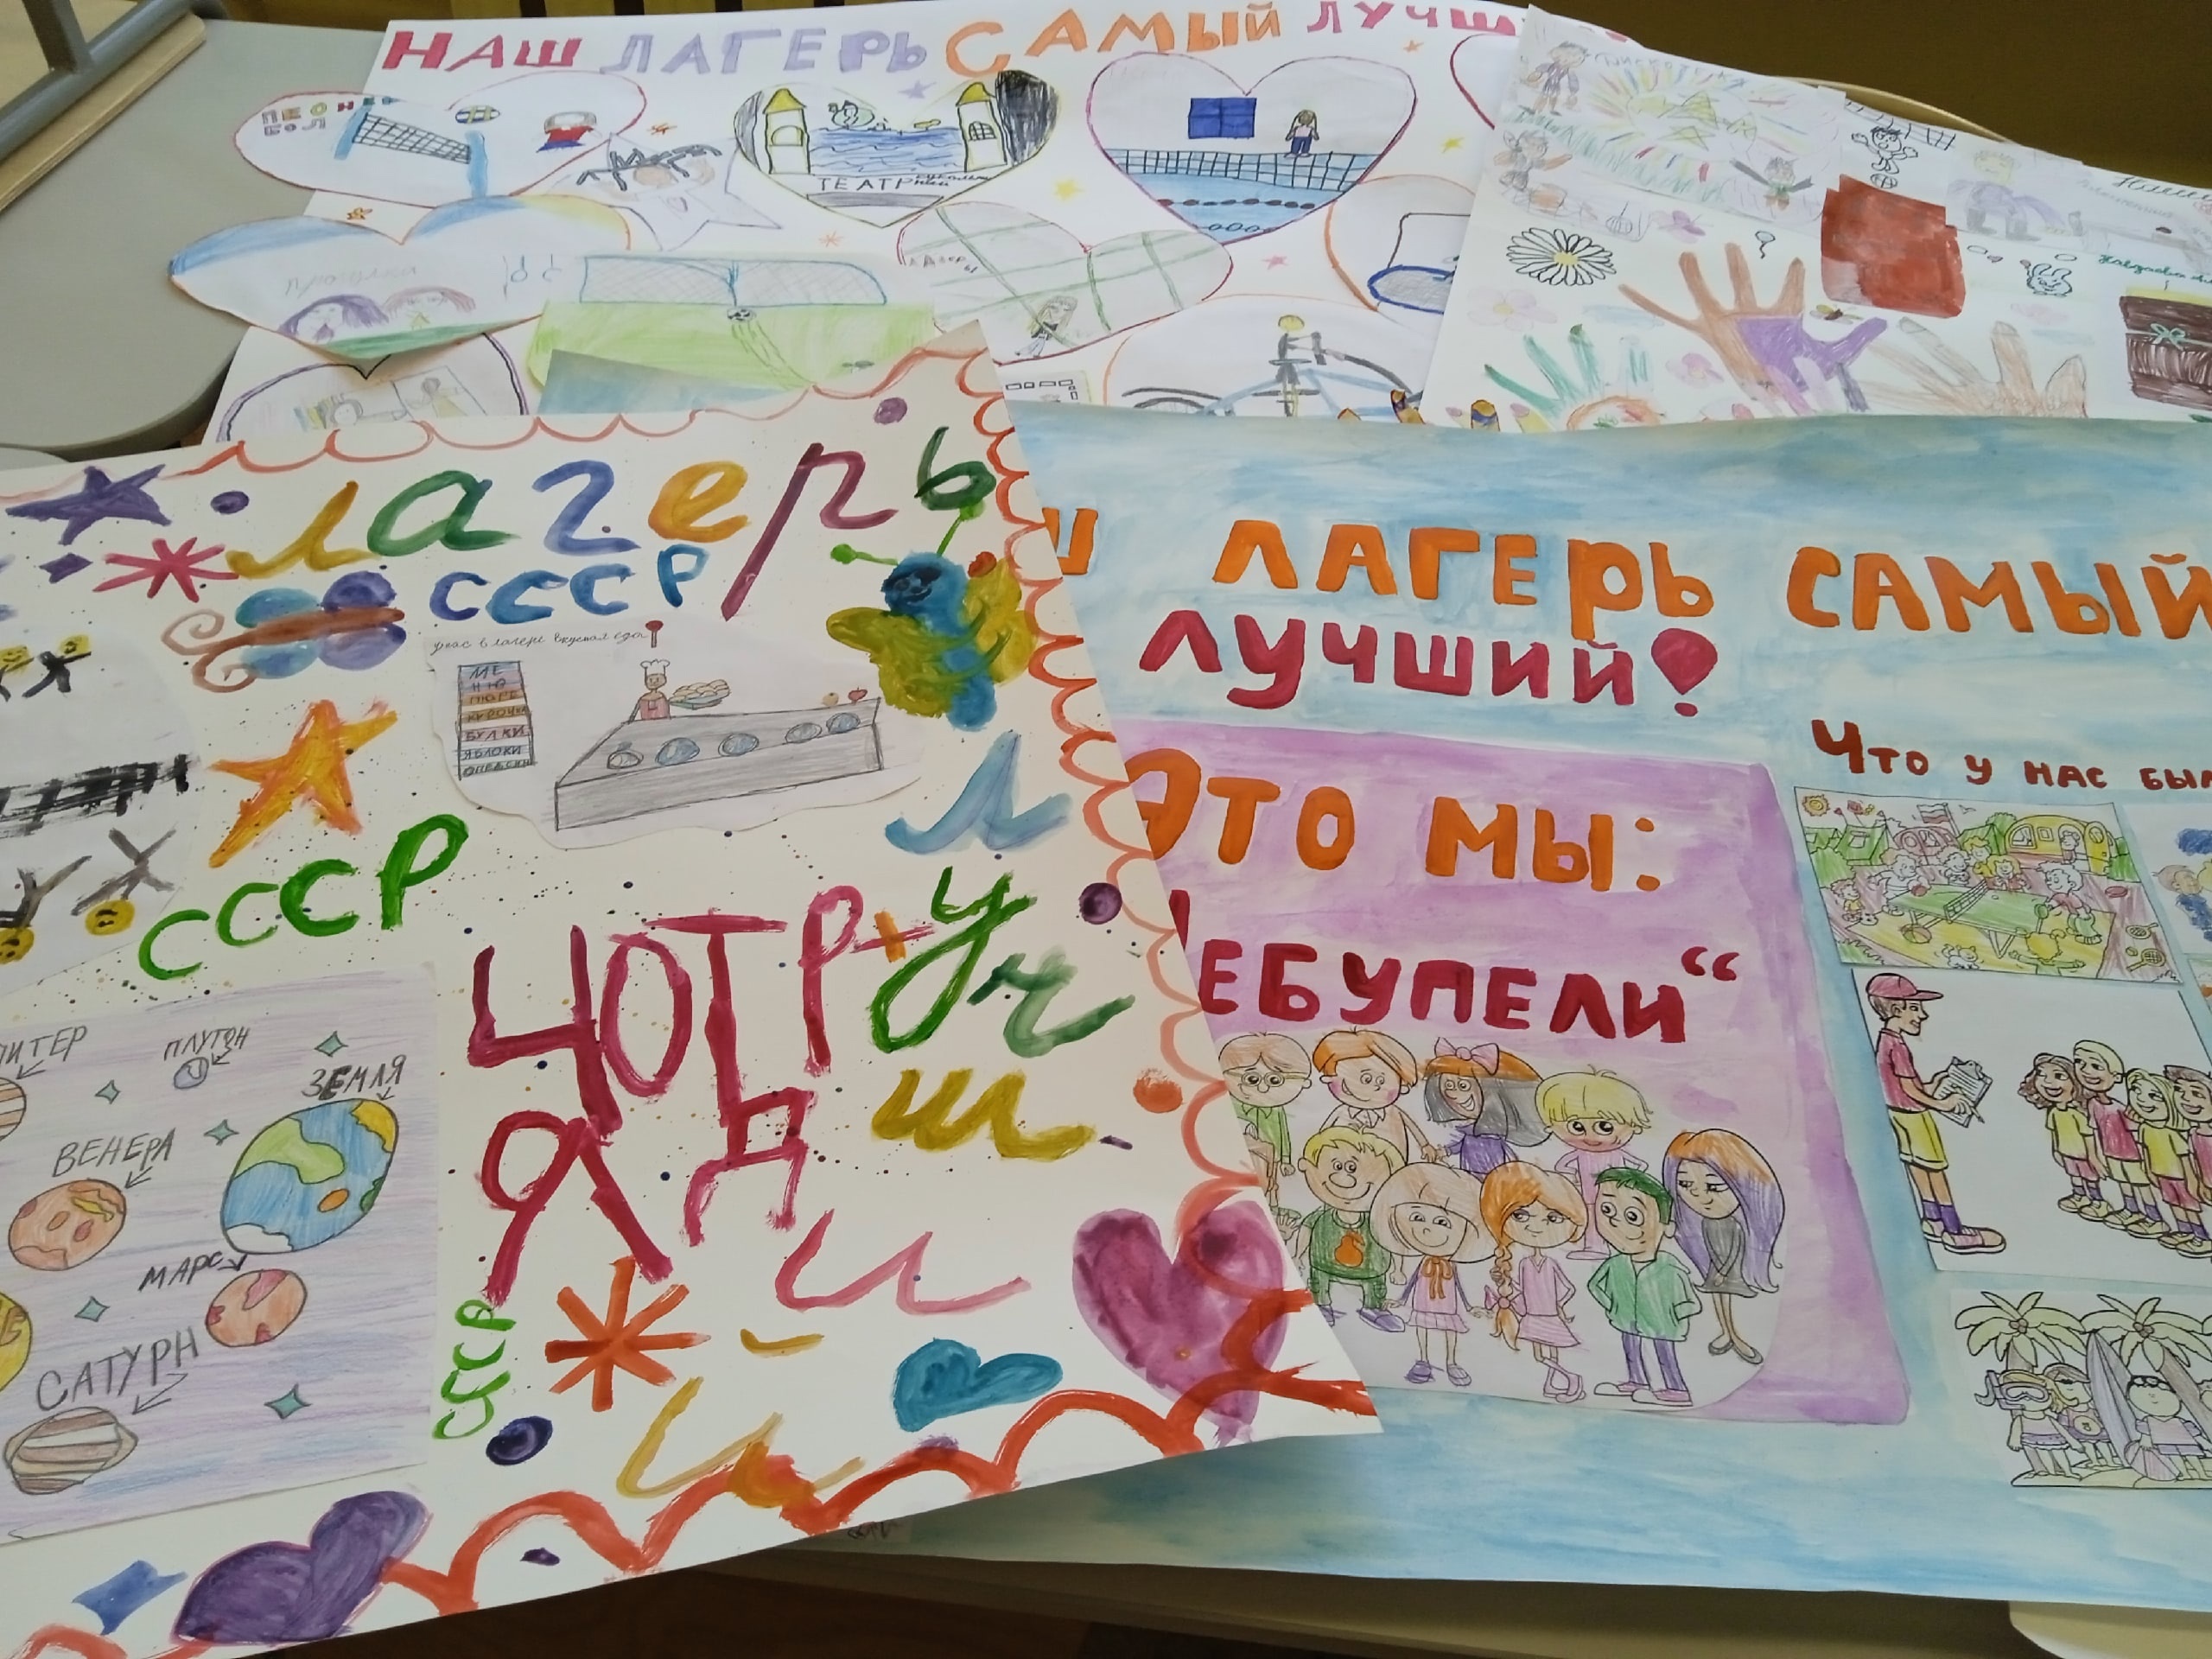 НАШ ЛАГЕРЬ САМЫЙ ЛУЧШ
ПИОНЕР
БОЛ
ТЕАТР
Прогулка
Дискотека
лагерь
СССР
у нас в лагере вкусная еда
МЕ
НЮ
ПЮРЕ
КУРОЧКА
БУЛКИ
ЯБЛОКИ
СССР
ЧОТР+
ЯД
Лучший
СССР
ПИТЕР
ПЛУТОН
ЗЕМЛЯ
ВЕНЕРА
МАРС
САТУРН
Ш ЛАГЕРЬ САМЫЙ
ЛУЧШИЙ!
ЭТО МЫ:
ЧЕБУПЕЛИ“
Что у нас был